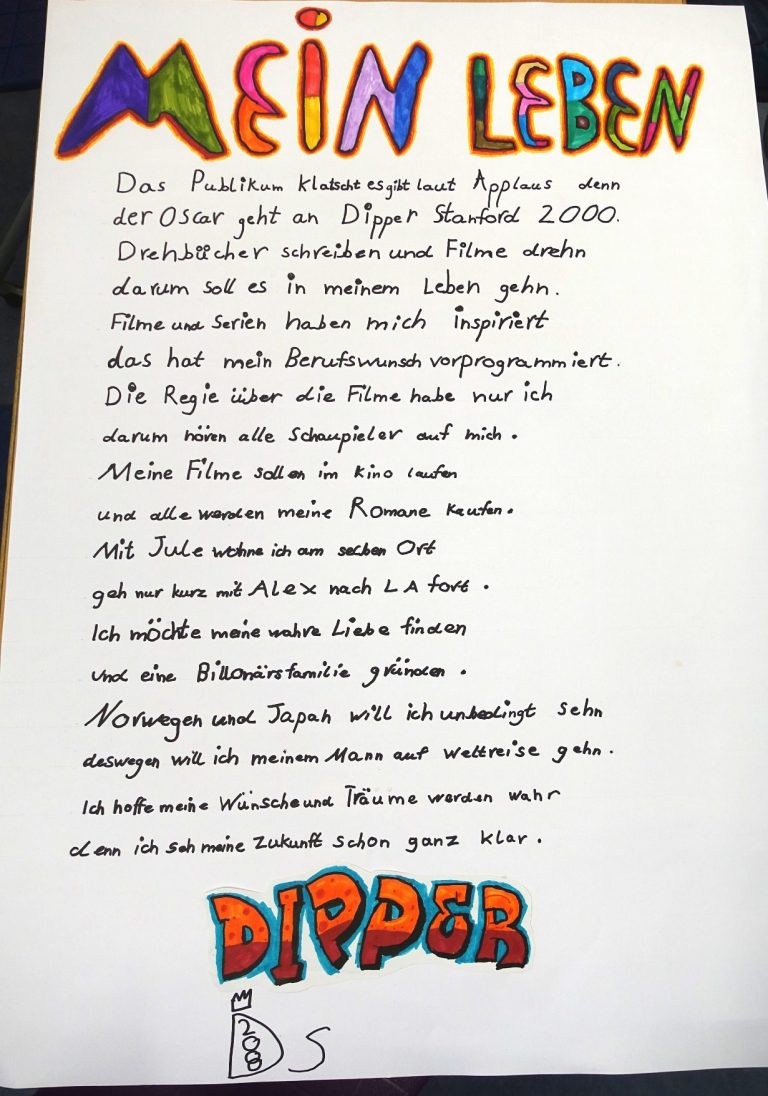 MEIN LEBEN
Das Publikum klatscht es gibt laut Applaus denn
der Oscar geht an Dipper Stanford 2000.
Drehbücher schreiben und Filme drehn
darum soll es in meinem Leben gehn.
Filme und Serien haben mich inspiriert
das hat mein Berufswunsch vorprogrammiert.
Die Regie über die Filme habe nur ich
darum hören alle Schaupieler auf mich.
Meine Filme sollen im Kino laufen
und alle werden meine Romane kaufen.
Mit Jule wohne ich am selben Ort
geh nur kurz mit Alex nach LA fort.
Ich möchte meine wahre Liebe finden
und eine Billonärsfamilie gründen.
Norwegen und Japan will ich unbedingt sehn
deswegen will ich meinem Mann auf Weltreise gehn.
Ich hoffe meine Wünsche und Träume werden wahr
denn ich seh meine Zukunft schon ganz klar.
DIPPER
D 2000 S